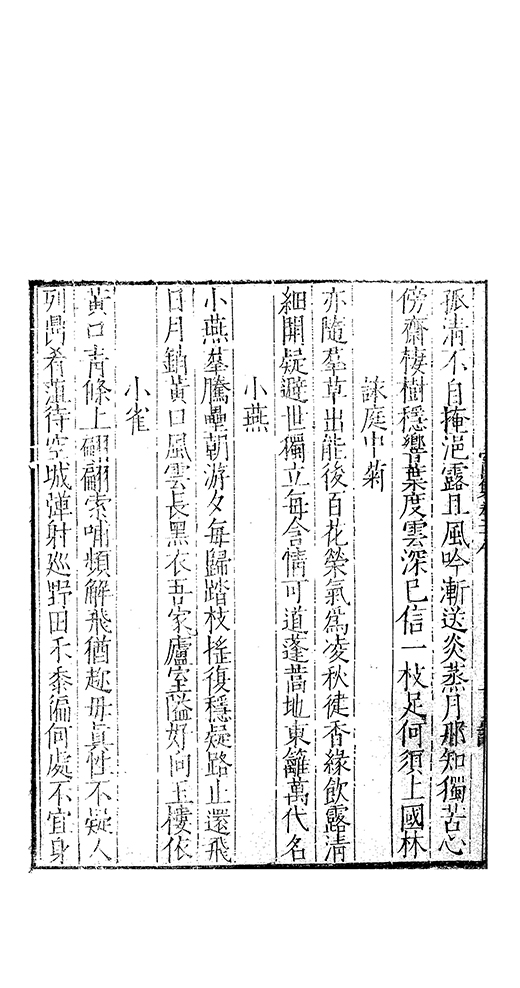 孤清不自掩浥露且風吟漸送炎蒸月那知獨苦心
傍齋棲樹穩響葉度雲深已信一枝足何須上國林
詠庭中菊
亦隨羣草出能後百花榮氣為凌秋健香緣飲露清
細開疑避世獨立每含情可道蓬蒿地東籬萬代名
小燕
小燕羣騰壘朝游夕每歸踏枝搖復穩疑路止還飛
日月銷黃口風雲長黑衣吾家廬室隘好向玉樓依
小雀
黃口青條上翩翻索哺頻解飛猶趂母真性不疑人
列鼎肴葅待空城彈射廵野田禾黍徧何處不宜身